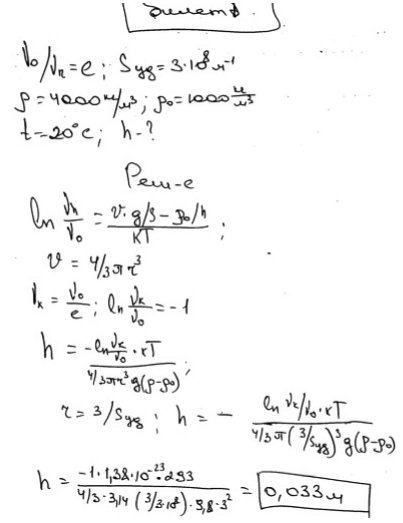 ν₀/νₕ = e; Sуд = 3·10⁸ м⁻¹
ρ = 4000 кг/м³; ρ₀ = 1000 кг/м³
t = 20°c; h - ?
Реш-е
ln νₕ/ν₀ = v·g/ρ - ρ₀/h / кT ;
v = 4/3 π r³
νₖ = ν₀/e ; ln νₖ/ν₀ = -1
h = -ln νₖ/ν₀ · кT / 4/3 π r³ g(ρ-ρ₀) ;
r = 3/Sуд ; h = - ln νₖ/ν₀ · кT / 4/3 π (3/Sуд)³ g(ρ-ρ₀)
h = -1·1,38·10⁻²³·293 / 4/3·3,14 (3/3·10⁸)·9,8·3² = 0,033м